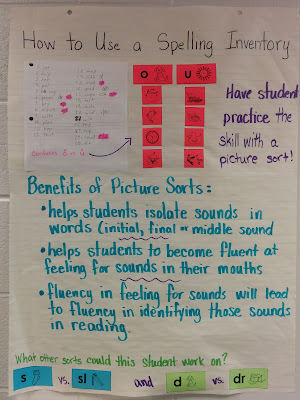 How to Use a Spelling Inventory
o u
Have student
practice the
skill with a
picture sort!
Confuses ŏ & ŭ
Benefits of Picture Sorts:
• helps students isolate sounds in
words (initial, final or middle sound
• helps students to become fluent at
feeling for sounds in their mouths
• fluency in feeling for sounds will lead
to fluency in identifying those sounds
in reading.
What other sorts could this student work on?
s vs. sl and d vs. dr